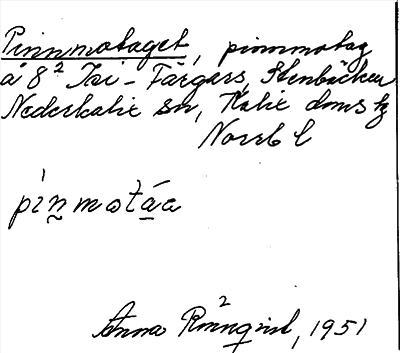 Pinnmotaget, pinnmotag
å 8² Tri-Färgers, Stenbäcken
Nederkalix sn, Kalix doms tg
Norrb l
pìn̰motáa
Anna Rönnqvist, 1951